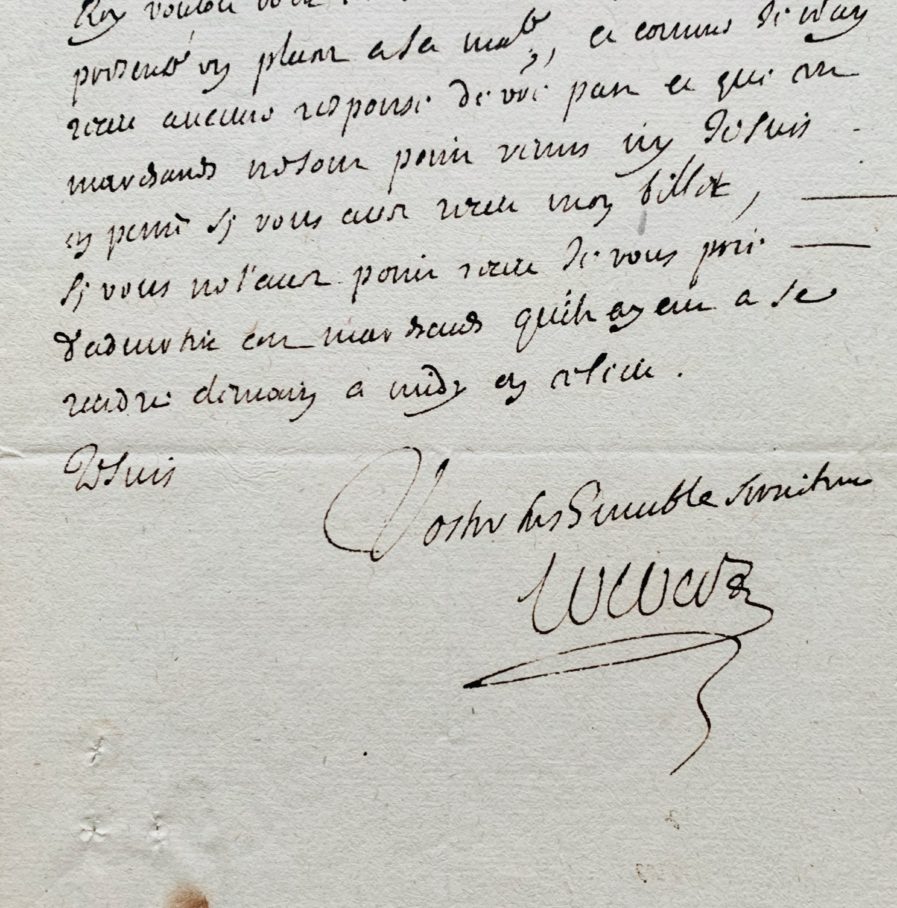 Roy vouloir
presenté un placet a sa ma.té, et comme je n'ay
receu aucune response de v.re part et que
marchands ne sont point venus icy Je suis
en peine sy vous avez receu mon billet,
sy vous ne l'avez point receu Je vous prie
d'advertir ces marchands qu'ils ayent a se
rendre demain a midy en ce lieu.
Je suis
Vostre tres humble serviteur